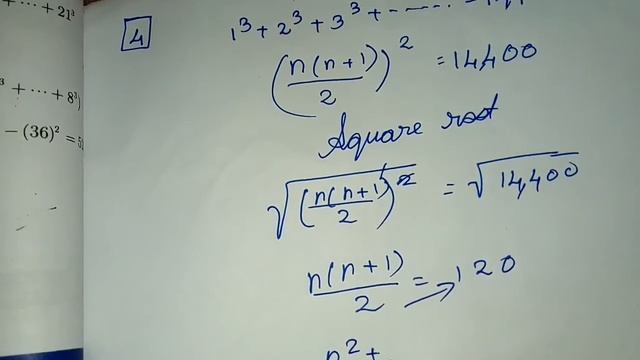 + ⋯ + 21³
³ + ⋯ + 8³)
− (36)² = 5
4
1³ + 2³ + 3³ + -----
(n(n+1)/2)² = 14,400
Square root
√(n(n+1)/2)² = √14,400
n(n+1)/2 = 120
n² +